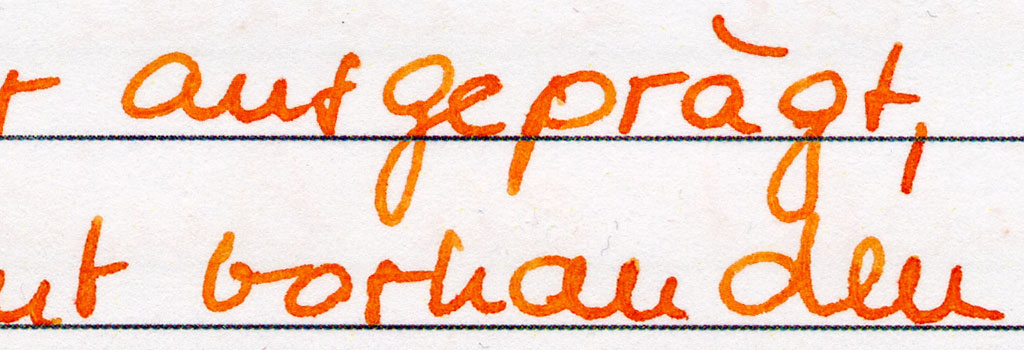 ausgeprägt,
vorhanden